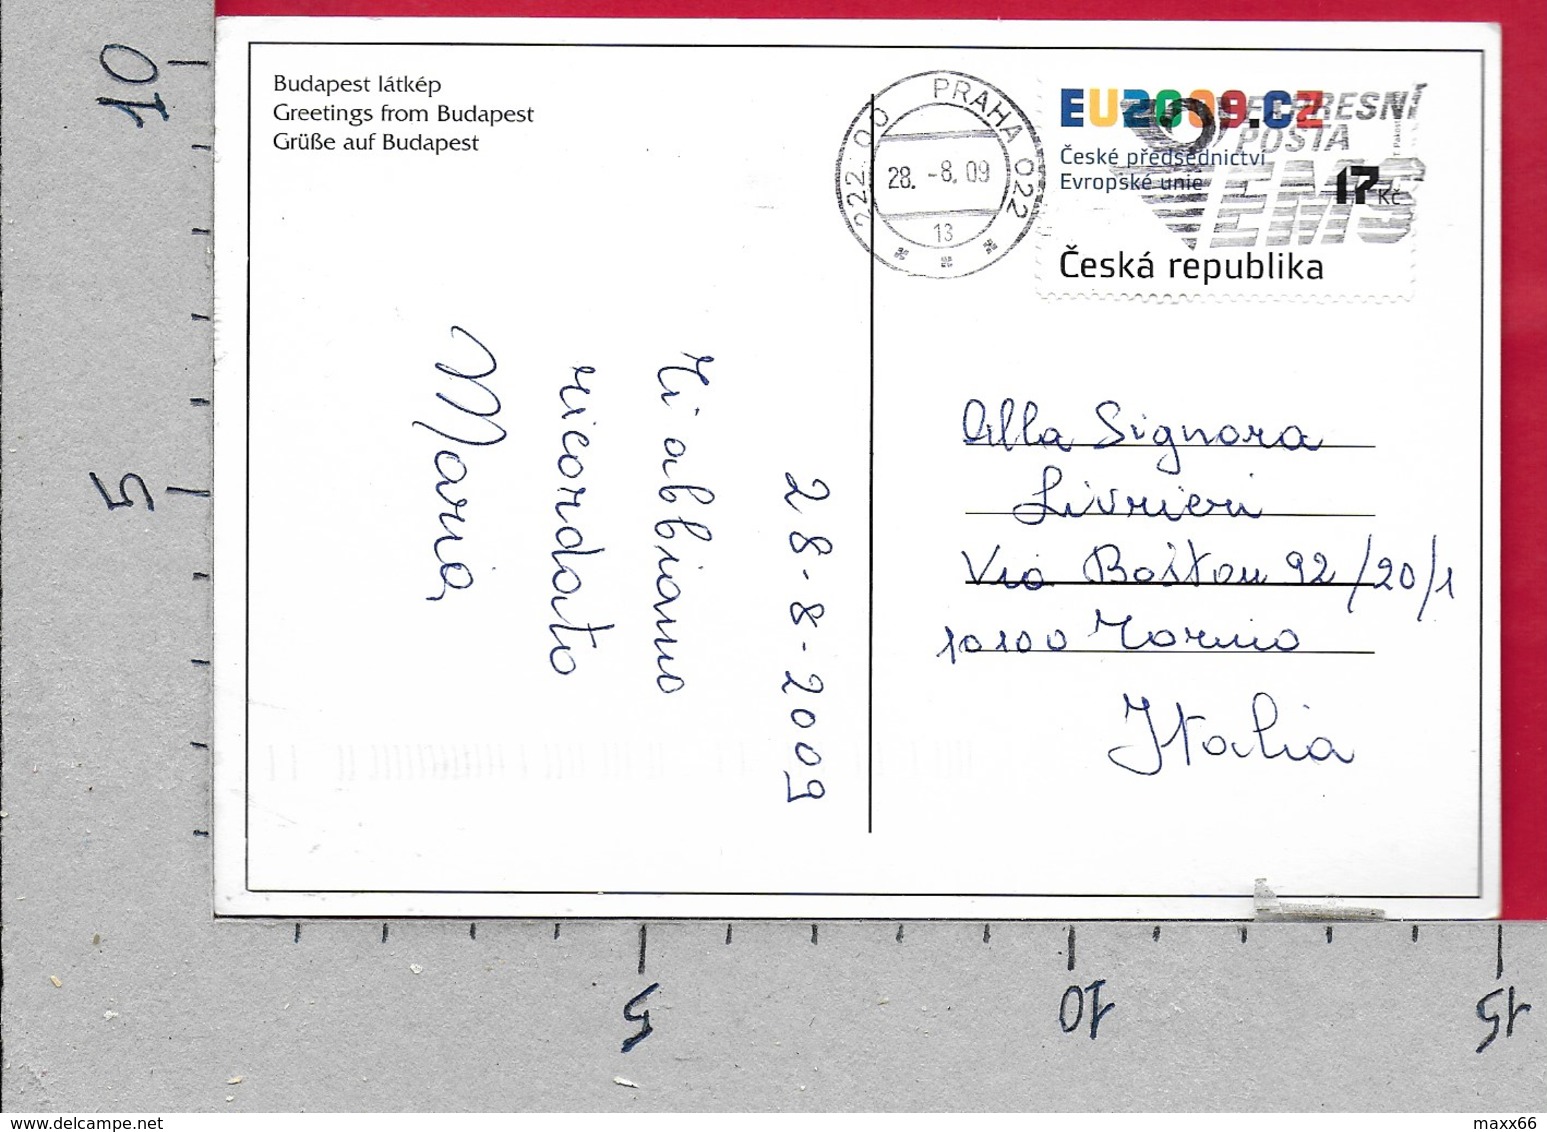 Budapest látkép
Greetings from Budapest
Grüße auf Budapest
222 00 PRAHA 022
28. -8. 09
13
EU2009.CZ
České předsednictví
Evropské unie
17 Kč
Česká republika
EXPRESNÍ
POŠTA
EMS
28-8-2009
Vi abbiamo
ricordato
Maria
Alla Signora
Livrieri
Via Boston 92/20/1
10100 Torino
Italia
10
5
5
10
15
www.delcampe.net
maxx66